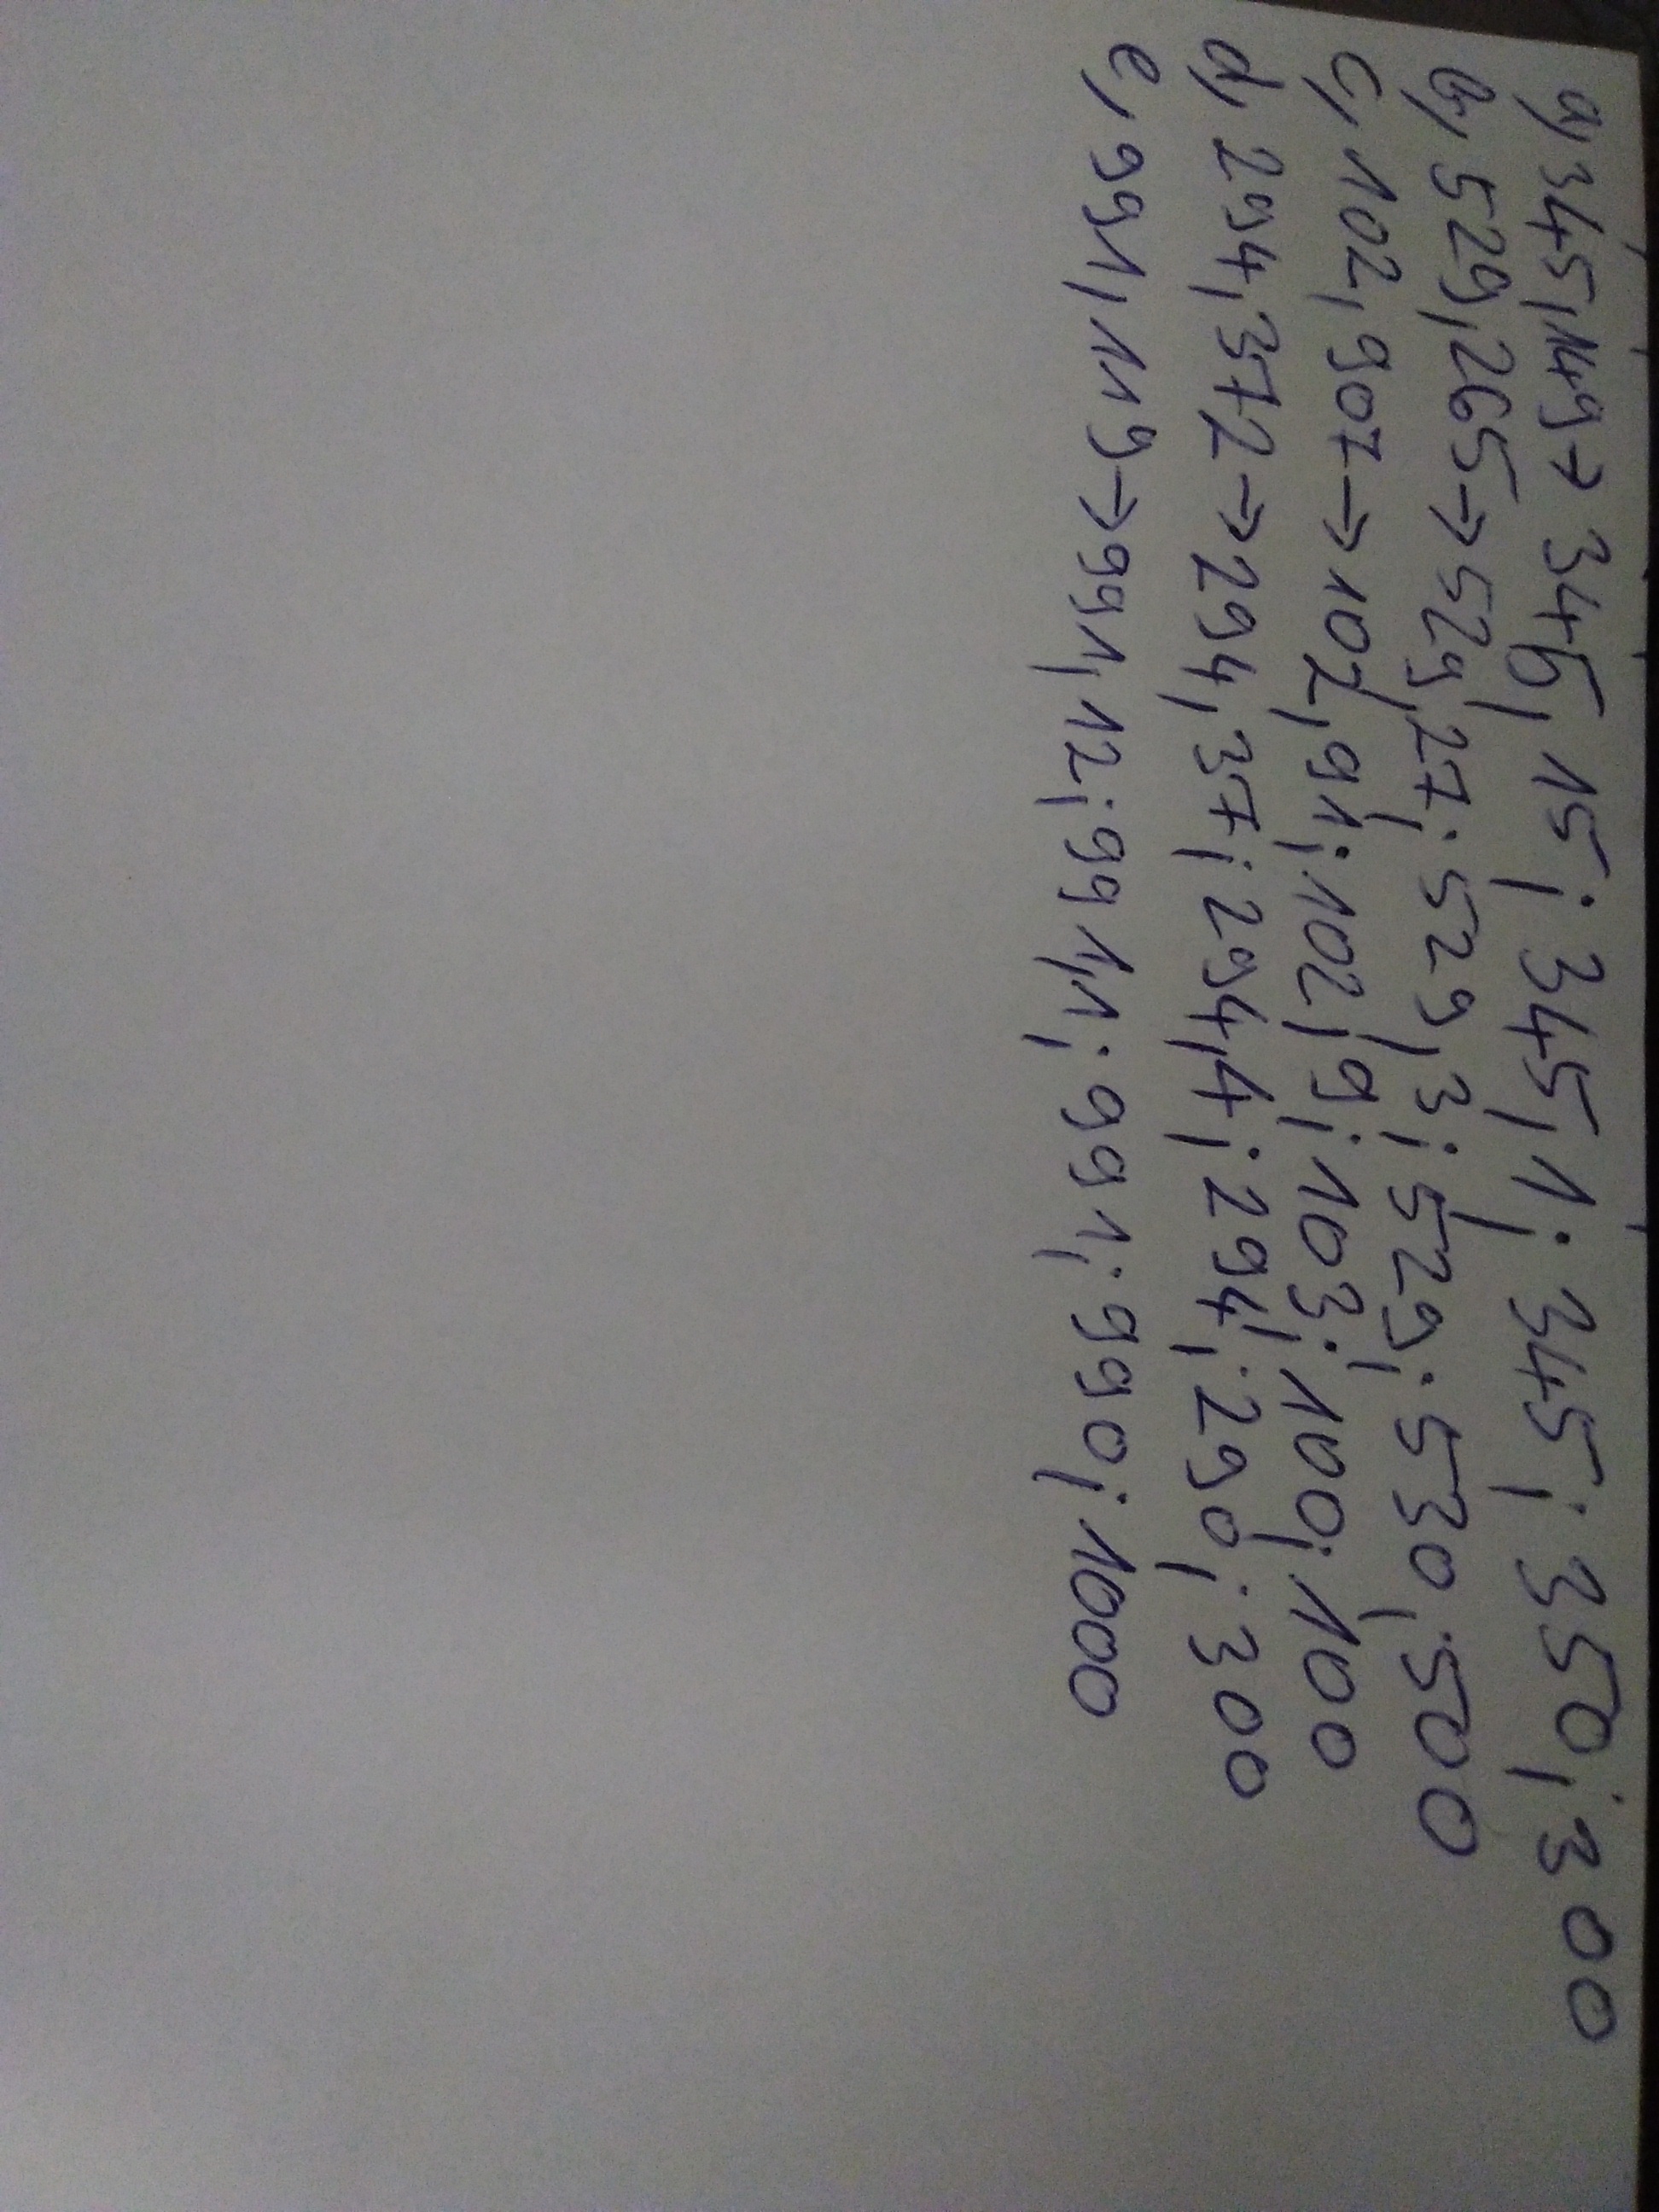 a, 345,149→ 345, 15; 345,1; 345; 350; 300
b, 529,265→529,27; 529,3; 529; 530; 500
c, 102,907→102,91; 102,9; 103; 100; 100
d, 294,372→294,37; 294,4; 294; 290; 300
e, 991,119→991,12; 991,1; 991; 990; 1000